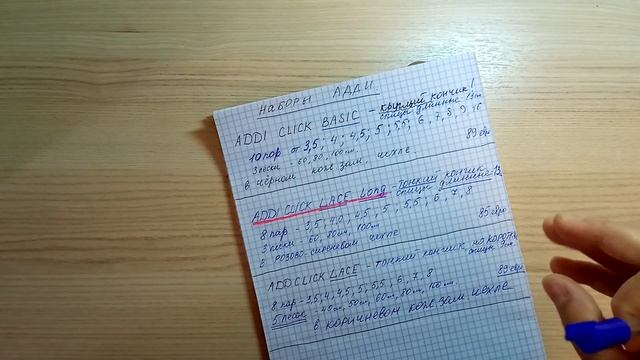 НАБОРЫ АДДИ
ADDI CLICK BASIC - круглый кончик!
спицы длинные
10 пар от 3,5; 4; 4,5; 5; 5,5; 6, 7, 8, 9
3 лески - 60, 80, 100 см. 89 евр
в чёрном кож зам. чехле
ADDI CLICK LACE Long - тонкий кончик
спицы длинные
8 пар - 3,5, 4,0, 4,5, 5, 5,5, 6, 7, 8
3 лески - 60, 80 см, 100 см 85 евро
в розово-сиреневом чехле
ADDI CLICK LACE - тонкий кончик, но
спицы
8 пар - 3,5, 4, 4,5, 5, 5,5, 6, 7, 8 89 евро
5 лесок - 40 см, 50 см, 60 м, 80 м, 100 м.
в коричневом кож зам чехле